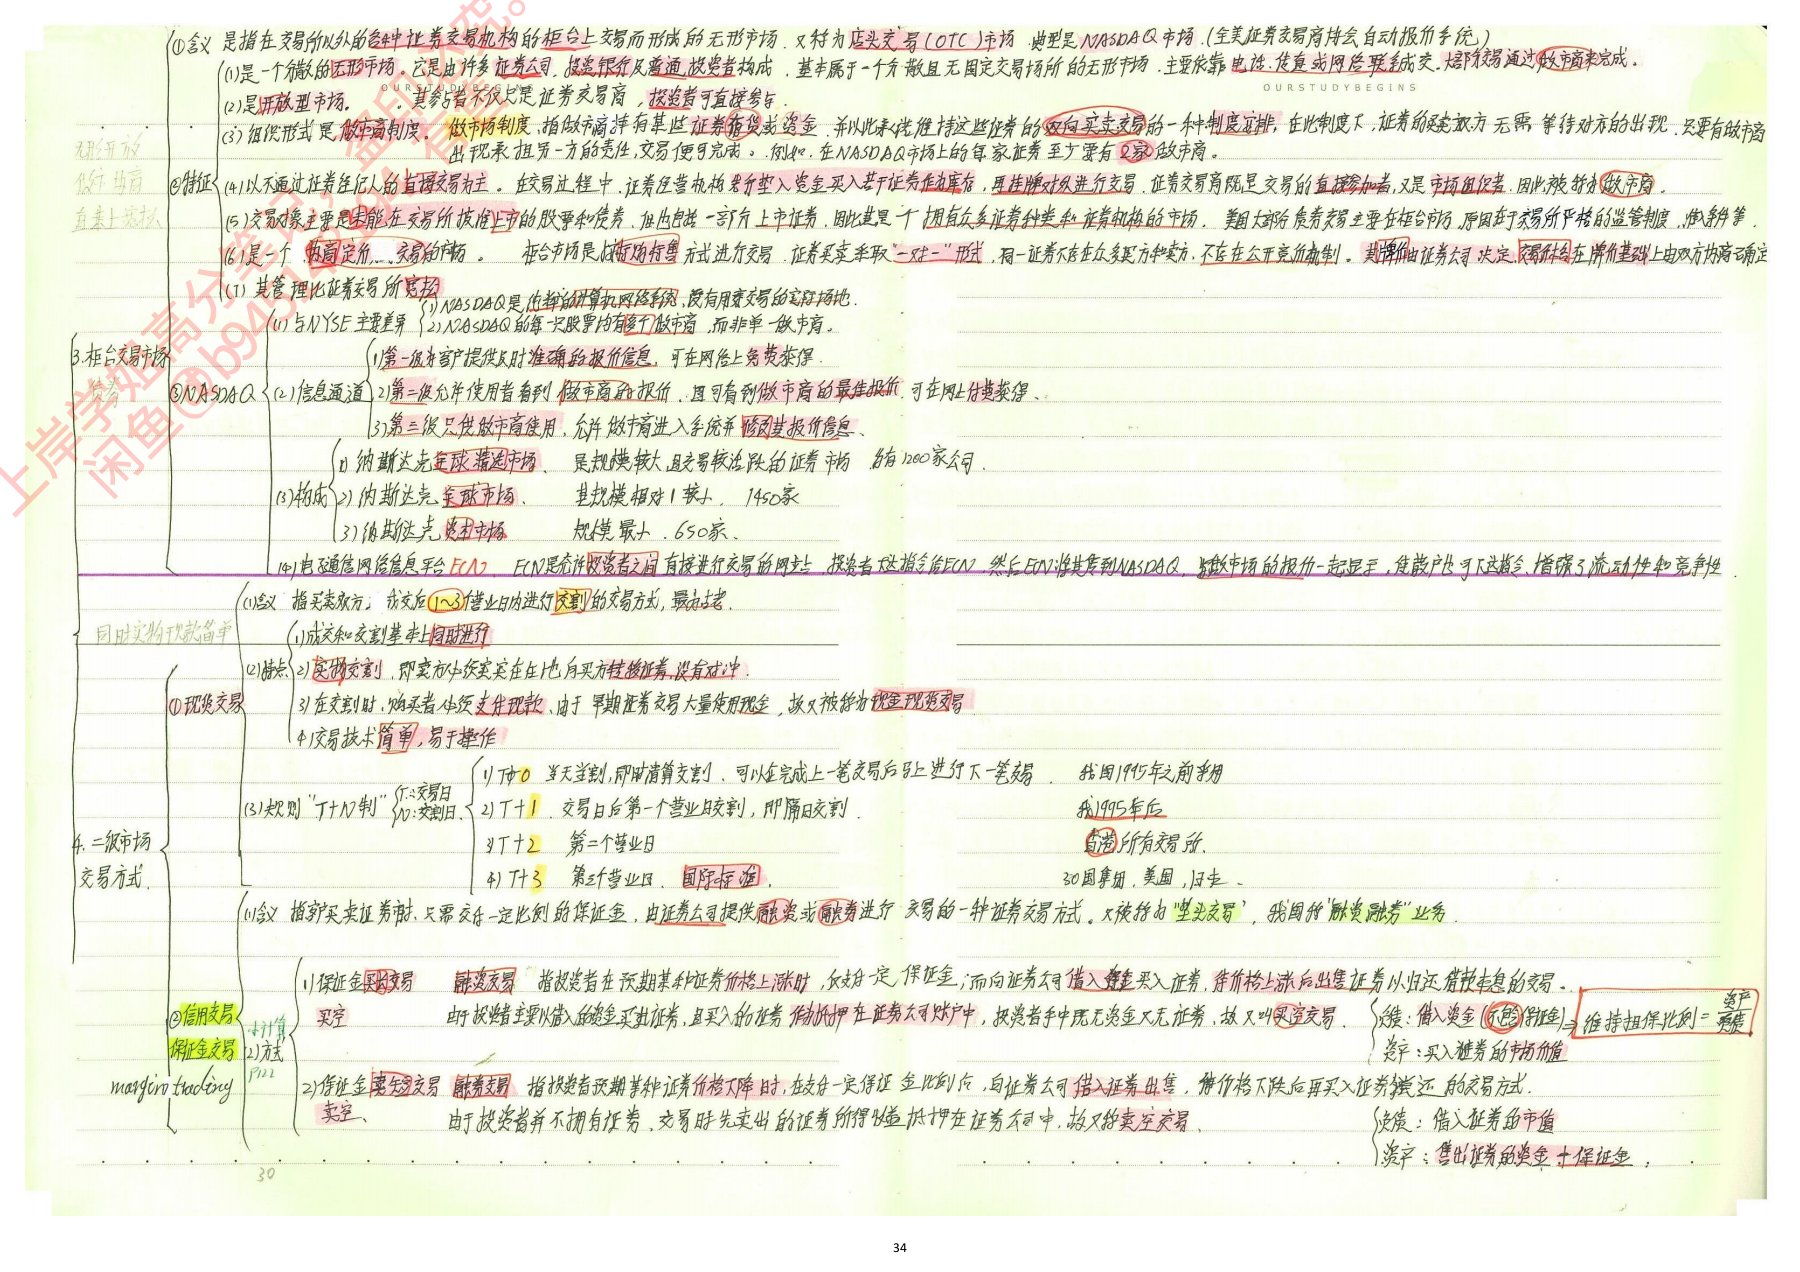 ①含义 是指在交易所以外的各种证券交易机构的柜台上交易而形成的无形市场.又称为店头交易(OTC)市场 典型是NASDAQ市场.(全美证券交易商协会自动报价系统)
(1)是一个分散的无形市场.它是由许多证券公司、投资银行及普通投资者构成.基本属于一个分散且无固定交易场所的无形市场.主要依靠电话、传真或网络联系成交.大部分交易通过做市商来完成.
OURSTUDYBEGINS
OURSTUDYBEGINS
(2)是开放型市场。其参与者不仅只是证券交易商,投资者可直接参与.
(3)组织形式是做市商制度。做市场制度,指做市商持有某些证券存货或资金,并以此来维持这些证券的双向买卖交易的一种制度安排,在此制度下,证券的买卖双方无需等待对方的出现,只要有做市商
出现承担另一方的责任,交易便可完成。例如.在NASDAQ市场上的每家证券至少要有2家做市商。
②特征
(4)以不通过证券经纪人的直接交易为主。在交易过程中.证券经营机构先行垫入资金买入若干证券作为库存,再挂牌对外进行交易.证券交易商既是交易的直接参加者,又是市场组织者.因此被称为做市商.
(5)交易对象主要是未能在交易所批准上市的股票和债券.但也包括一部分上市证券.因此其是一个拥有众多证券种类和证券机构的市场.美国大部分债券交易主要在柜台市场.原因在于交易所严格的监管制度,准入条件等.
(6)是一个协商定价 交易的市场。柜台市场是 方式进行交易.证券买卖采取“一对一”形式,同一证券不存在众多买方和卖方,不存在公开竞价机制。其牌价由证券公司决定.交易价格在牌价基础上由双方协商确定
(7)其管理比证券交易所宽松
无形开放
做市商
3.柜台交易市场
债券
③NASDAQ
(1)与NYSE主要差异
1)NASDAQ是 的计算机网络系统,没有用来交易的实际场地.
2)NASDAQ的每一只股票均有多个做市商,而非单一做市商。
(2)信息通道
1)第一级为客户提供及时准确的报价信息.可在网络上免费获得.
2)第二级允许使用者看到做市商的报价.且可看到做市商的最佳报价.可在网上付费获得.
3)第三级只供做市商使用.允许做市商进入系统并修改其报价信息.
(3)构成
1)纳斯达克全球精选市场.是规模较大且交易较活跃的证券市场 约有1200家公司.
2)纳斯达克全球市场.其规模相对较小.1450家
3)纳斯达克资本市场 规模最小.650家.
(4)电子通信网络信息平台ECN.ECN是允许投资者之间直接进行交易的网站.投资者下达指令给ECN.然后ECN将其传到NASDAQ.与做市场的报价一起显示,使散户也可下达指令.增强了流动性和竞争性.
4.二级市场
交易方式.
同时实物现款简单
①现货交易
(1)含义 指买卖双方 成交后1~3个营业日内进行交割的交易方式,最古老.
(2)特点
1)成交和交割基本上同时进行
2)实物交割,即卖方必须实实在在地向买方转移证券.没有对冲.
3)在交割时.购买者必须支付现款、由于早期证券交易大量使用现金,故又被称为现金现货交易
4)交易技术简单,易于操作
(3)规则“T+N制” T:交易日 N:交割日.
1)T+0 当天交割,即时清算交割.可以在完成上一笔交易后马上进行下一笔交易.我国1995年之前采用
2)T+1.交易日后第一个营业日交割,即隔日交割.我1995年后
3)T+2 第二个营业日 香港所有交易所.
4)T+3 第三个营业日.国际标准.30国集团,美国,日本.
②信用交易
保证金交易
margin trading
(1)含义 指客户买卖证券时.只需交付一定比例的保证金,由证券公司提供融资或融券进行交易的一种证券交易方式.又被称为“垫头交易”,我国称“融资融券”业务.
计算
(2)方式
P122
1)保证金买空交易 融资交易 指投资者在预期某种证券价格上涨时,仅支付一定保证金,而向证券公司借入资金买入证券,待价格上涨后出售证券以归还借款本息的交易。
买空 由于投资者主要以借入的资金买进证券,且买入的证券作为抵押在证券公司账户中,投资者手中既无资金又无证券,故又叫买空交易.
负债:借入资金(不包含保证金)
资产:买入证券的市场价值
⇒维持担保比例=资产/负债
2)保证金卖空交易 融券交易 指投资者预期某种证券价格下降时,在支付一定保证金比例后,向证券公司借入证券出售,待价格下跌后再买入证券偿还的交易方式.
卖空.由于投资者并不拥有证券.交易时先卖出的证券所得收益抵押在证券公司中.故又称卖空交易.
负债:借入证券的市值
资产:售出证券的资金+保证金.
30
上岸学姐高分笔记
34